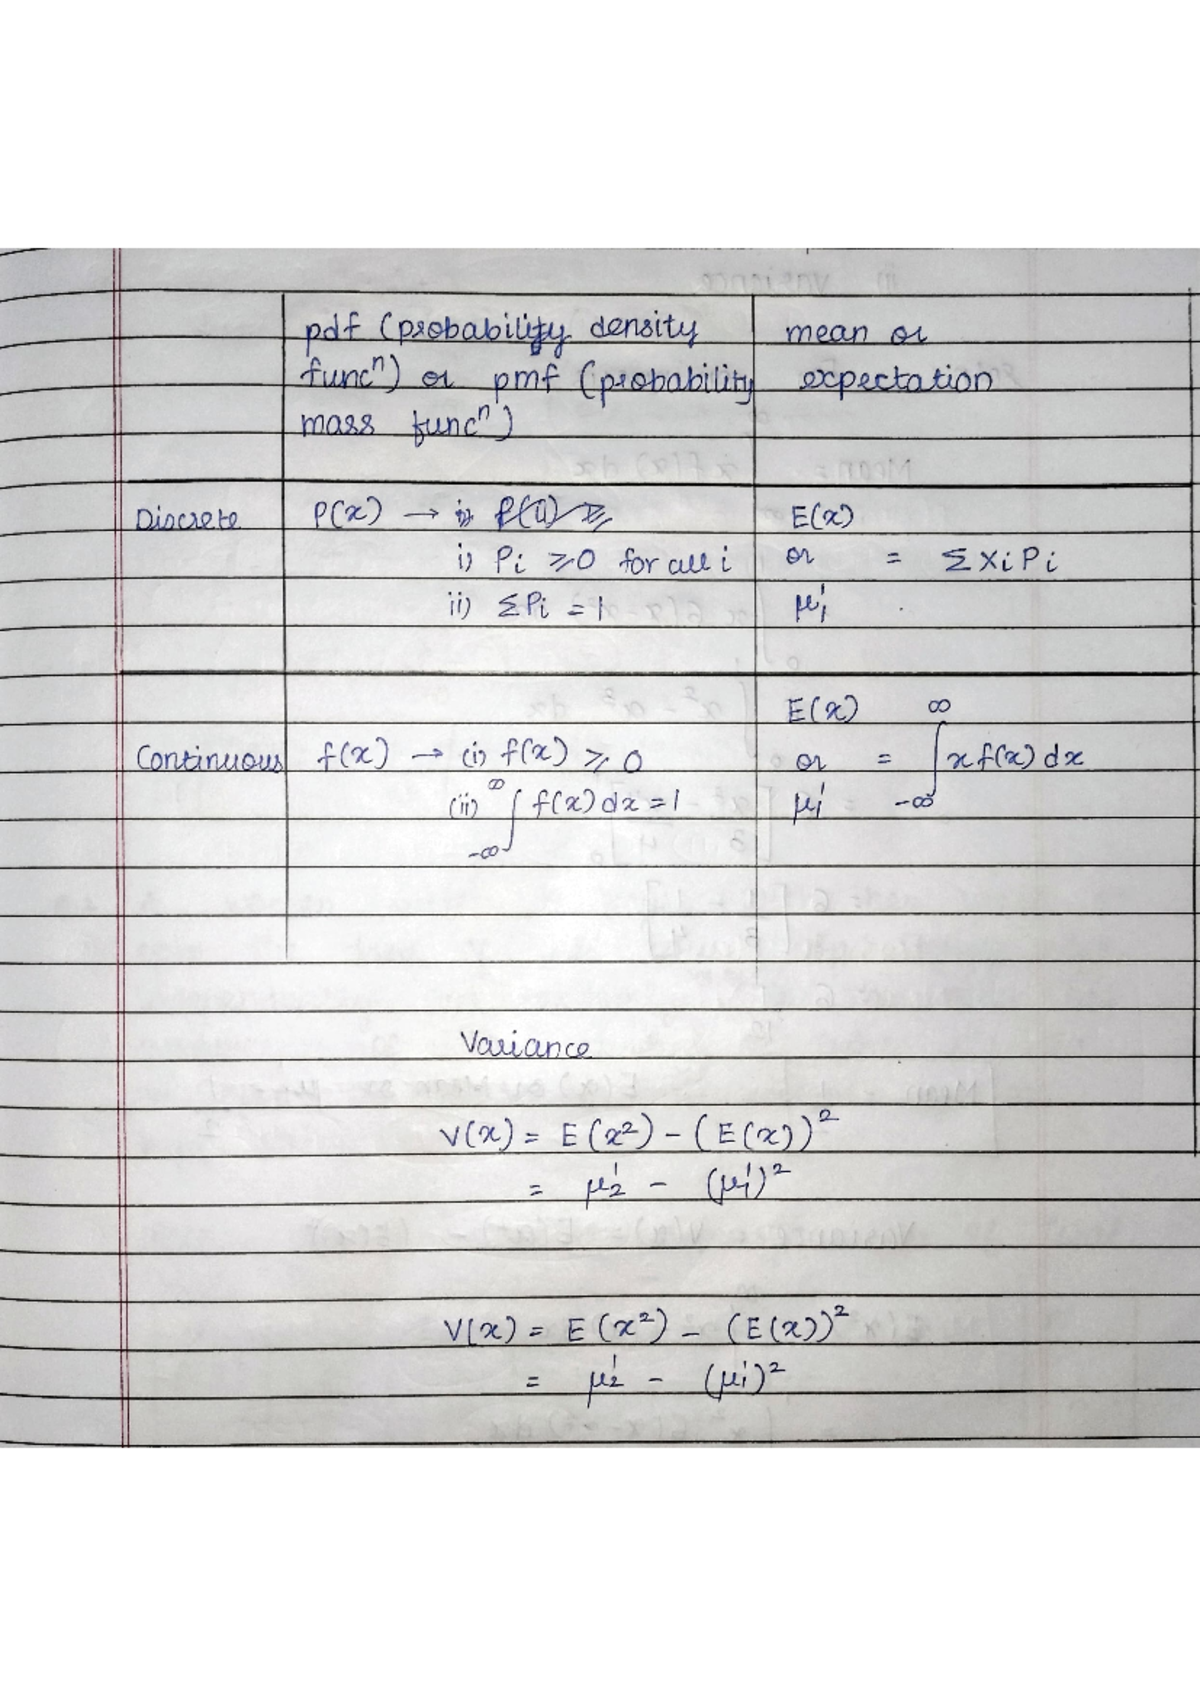 pdf (probability density
func^n) or pmf (probability
mass func^n)
mean or
expectation
Discrete
P(x) → i)
i) Pi ⩾0 for all i
ii) ΣPi = 1
E(x)
or = Σ Xi Pi
μ₁′
Continuous
f(x) → (i) f(x) ⩾ 0
(ii) ∫_{-∞}^{∞} f(x) dx = 1
E(x)
or = ∫_{-∞}^{∞} x f(x) dx
μ₁′
Variance
V(x) = E(x²) - (E(x))²
= μ₂′ - (μ₁′)²
V(x) = E(x²) - (E(x))²
= μ₂′ - (μ₁′)²